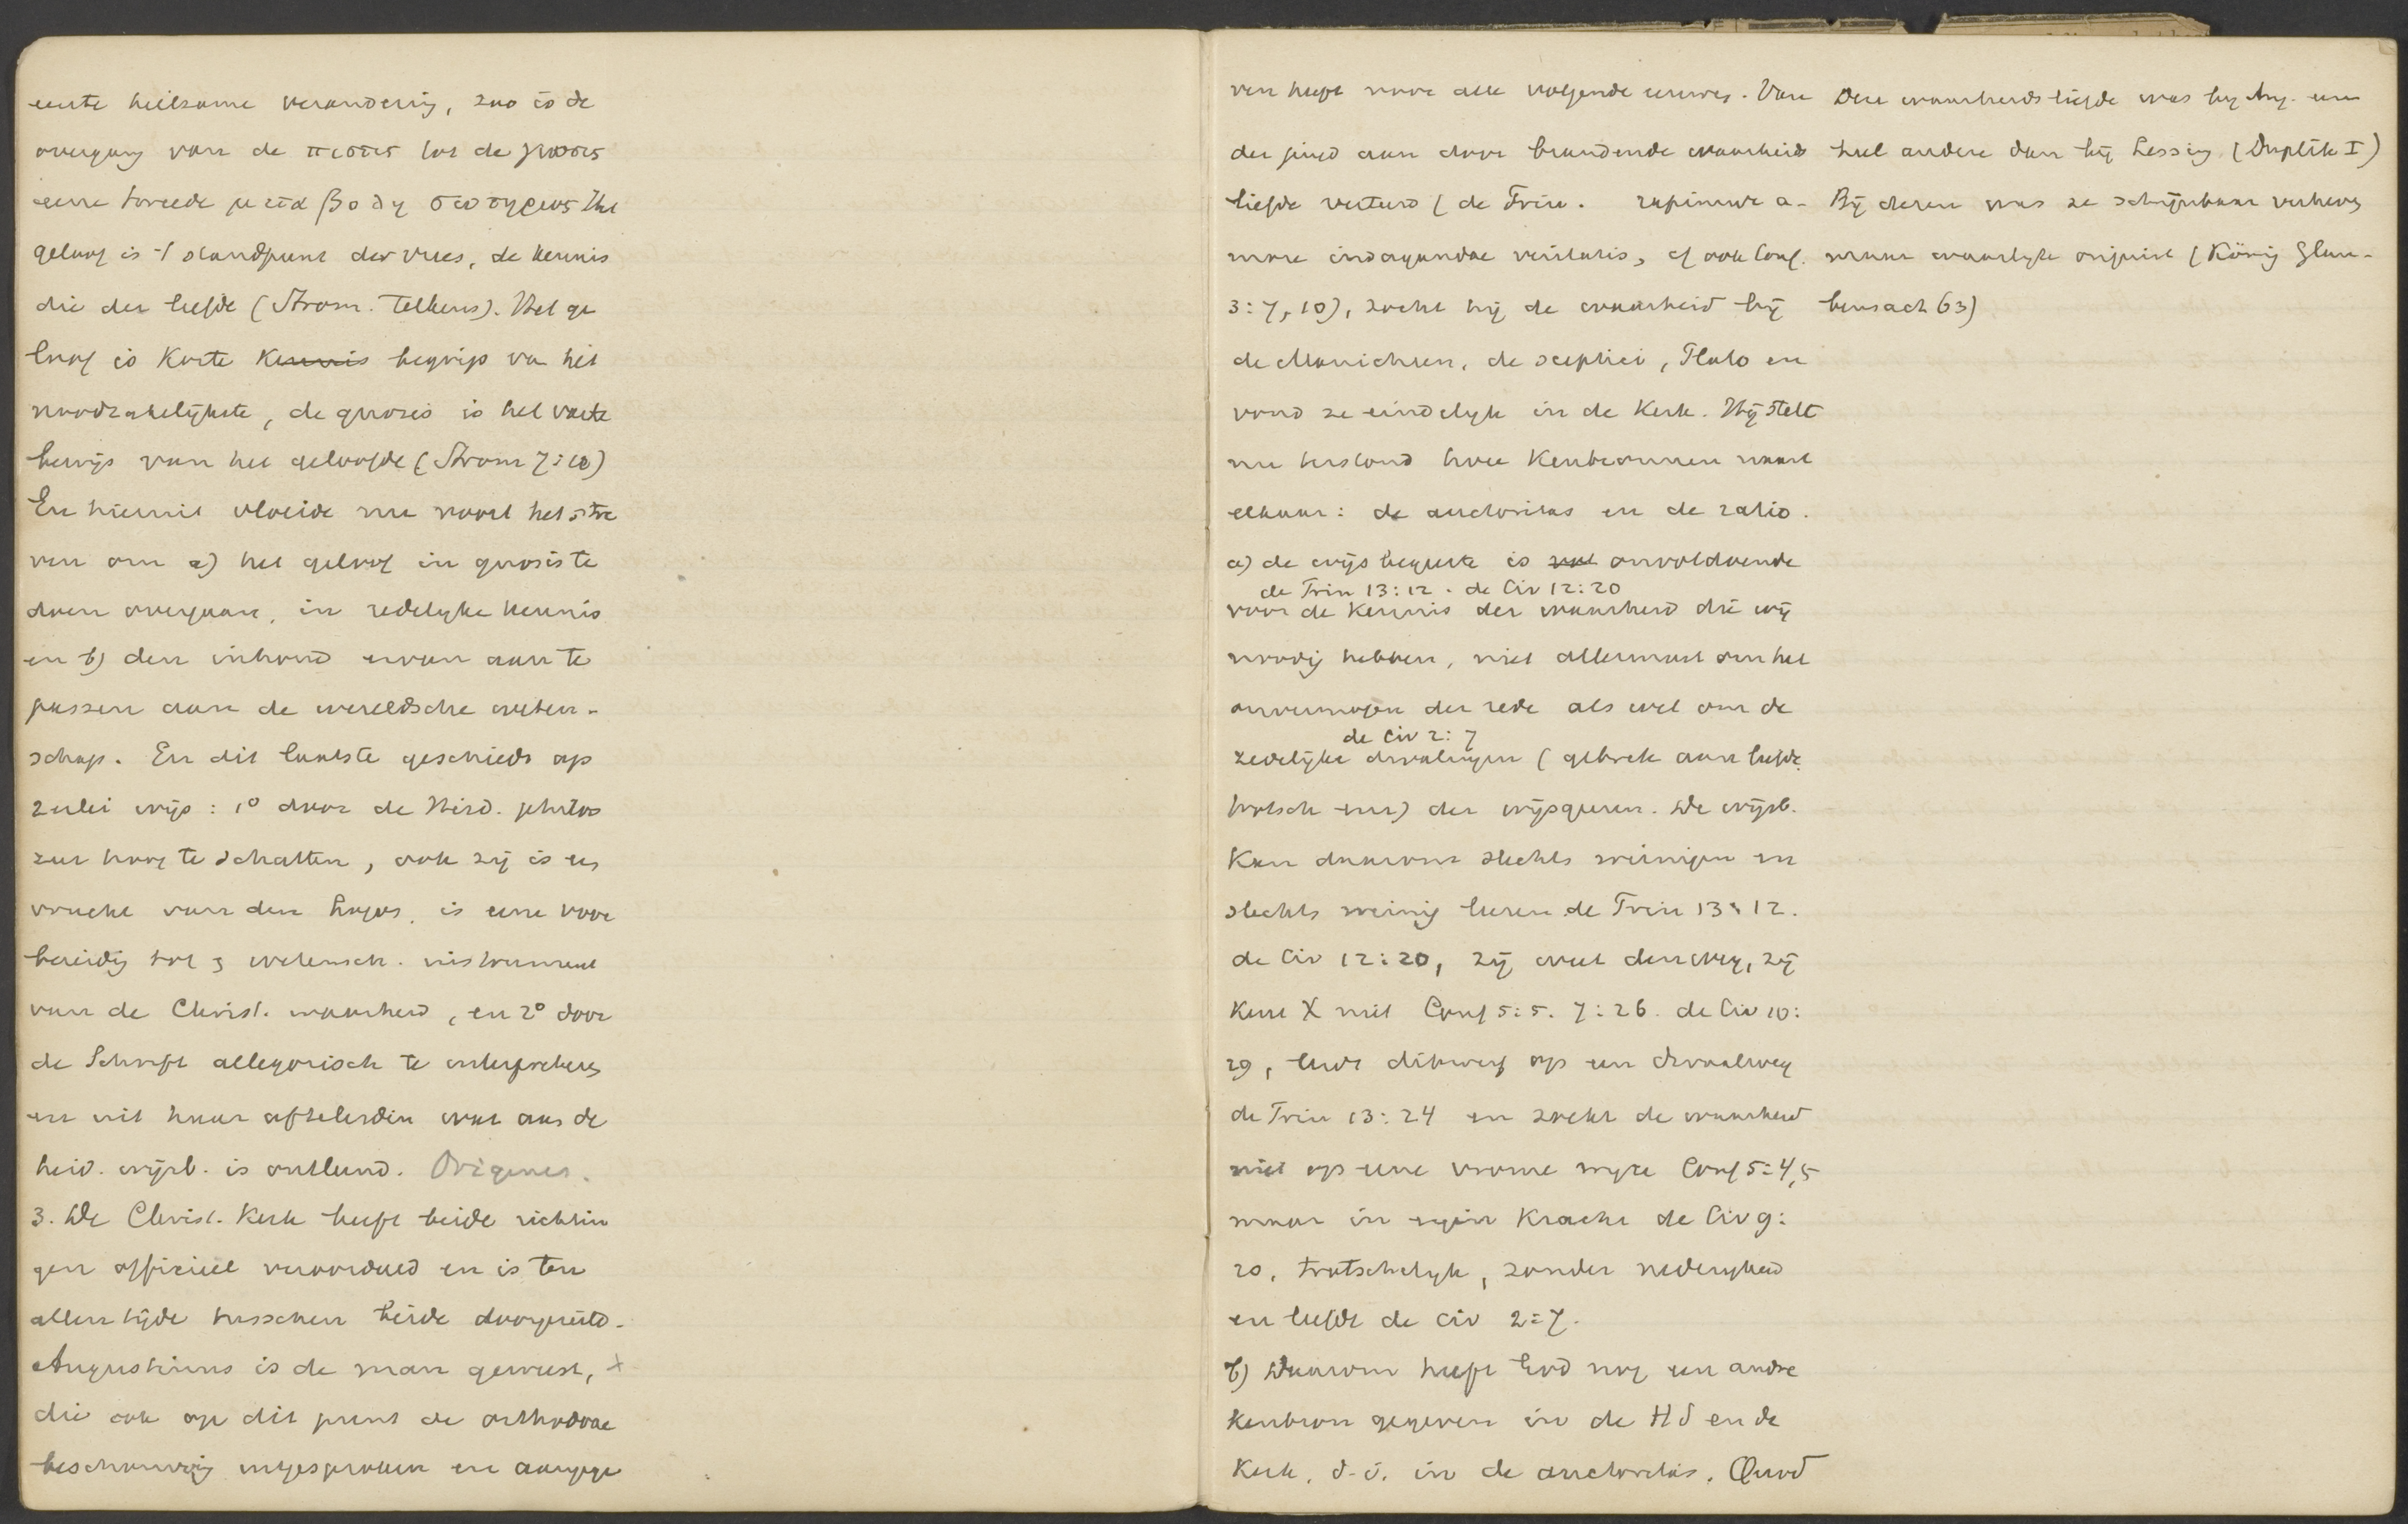 eerste heilzame verandering, zoo is de
overgang van de πιστις tot de γνωσις
eene tweede μεταβολη σωτηριος Het
geloof is 't standpunt der vrees, de kennis
die der liefde (Strom. telkens). Het ge
loof is korte kennis begrip van het
noodzakelijkste, de gnosis is het vaste
bewijs van het geloofde (Strom 7:10)
En hieruit vloeide nu voort het stre
ven om a) het geloof in gnosis te
doen overgaan, in redelyke kennis
en b) den inhoud ervan aan te
passen aan de wereldsche weten-
schap. En dit laatste geschiedt op
2erlei wijs: 1° door de Heid. philos
zeer hoog te schatten, ook zij is een
vrucht van den Logos, is eene voor
bereidig tot en wetensch. instrument
van de Christ. waarheid, en 2° door
de Schrift allegorisch te interpreteren
en uit haar afteleiden wat aan de
heid. wijsb. is ontleend. Origenes.
3. De Christ. Kerk heeft beide richtin
gen officieel veroordeeld en is ten
allen tijde tusschen beide doorgezeild.
Augustinus is de man geweest, +
die ook op dit punt de orthodoxe
beschouwing uitgesproken en aangege
ven heeft voor alle volgende eeuwen. Van
der jeugd aan door brandende waarheids
liefde verteerd (de Trin. rapimur a-
more indagandae veritatis, cf ook Conf.
3:7,10), zocht hij de waarheid bij
de Manicheen, de sceptici, Plato en
vond ze eindelyk in de Kerk. Hij stelt
nu terstond twee Kenbronnen naast
elkaar: de auctoritas en de ratio.
a) de wijsbegeerte is niet onvoldoende
de Trin 13:12. de Civ 12:20
voor de Kennis der waarheid die wij
noodig hebben, niet allermeest om het
onvermogen der rede als wel om de
de Civ 2:7
zedelijke dwalingen (gebrek aan liefde,
trotsch enz) der wijsgeeren. De wijsb.
Kan daarom slechts weinigen en
slechts weinig leeren de Trin 13:12.
de Civ 12:20, zij weet den weg, zij
Kent X niet Conf 5:5. 7:26. de Civ 10:
29, leidt dikwerf op een dwaalweg
de Trin 13:24 en zoekt de waarheid
niet op eene vrome wyze Conf 5:4,5
maar in eigen Kracht de Civ 9:
20, trotschelyk, zonder nederigheid
en liefde de Civ 2:7.
b) Daarom heeft God nog een andre
Kenbron gegeven in de H S en de
Kerk, d.i. in de auctoritas. Quod
Deze waarheidsliefde was by Aug. een
heel andere dan bij Lessing (Duplik I)
Bij dezen was ze schijnbaar verheven
maar waarlyk onjuist (König Glau-
bensact 63)